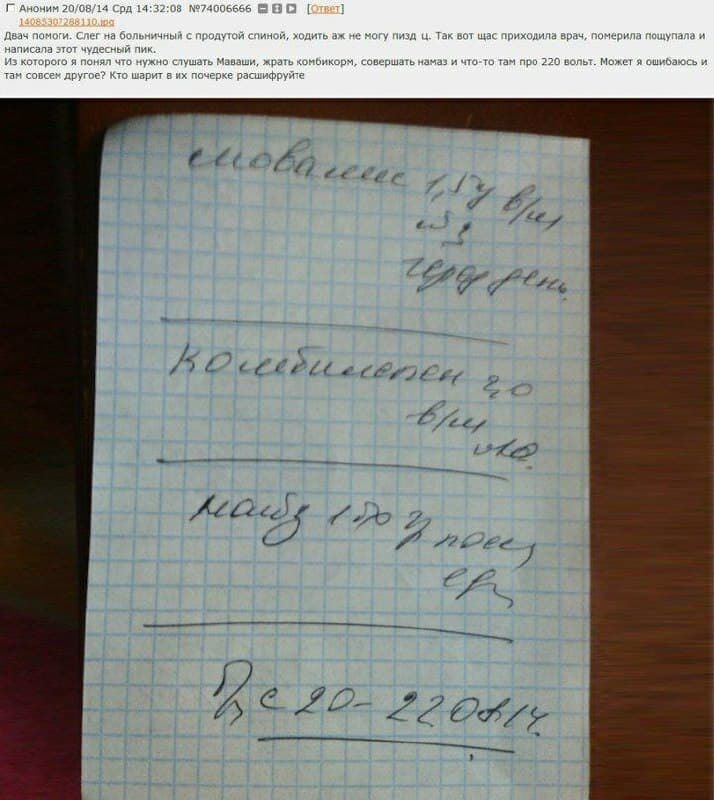 Аноним 20/08/14 Срд 14:32:08 №74006666 [Ответ]
14085307288110.jpg
Двач помоги. Слег на больничный с продутой спиной, ходить аж не могу пизд ц. Так вот щас приходила врач, померила пощупала и
написала этот чудесный пик.
Из которого я понял что нужно слушать Маваши, жрать комбикорм, совершать намаз и что-то там про 220 вольт. Может я ошибаюсь и
там совсем другое? Кто шарит в их почерке расшифруйте
мовалис 1,5 в/м
№3
через день.
Комбилепен 2,0
в/м
№10.
найз 100
с 20-22.08.14.